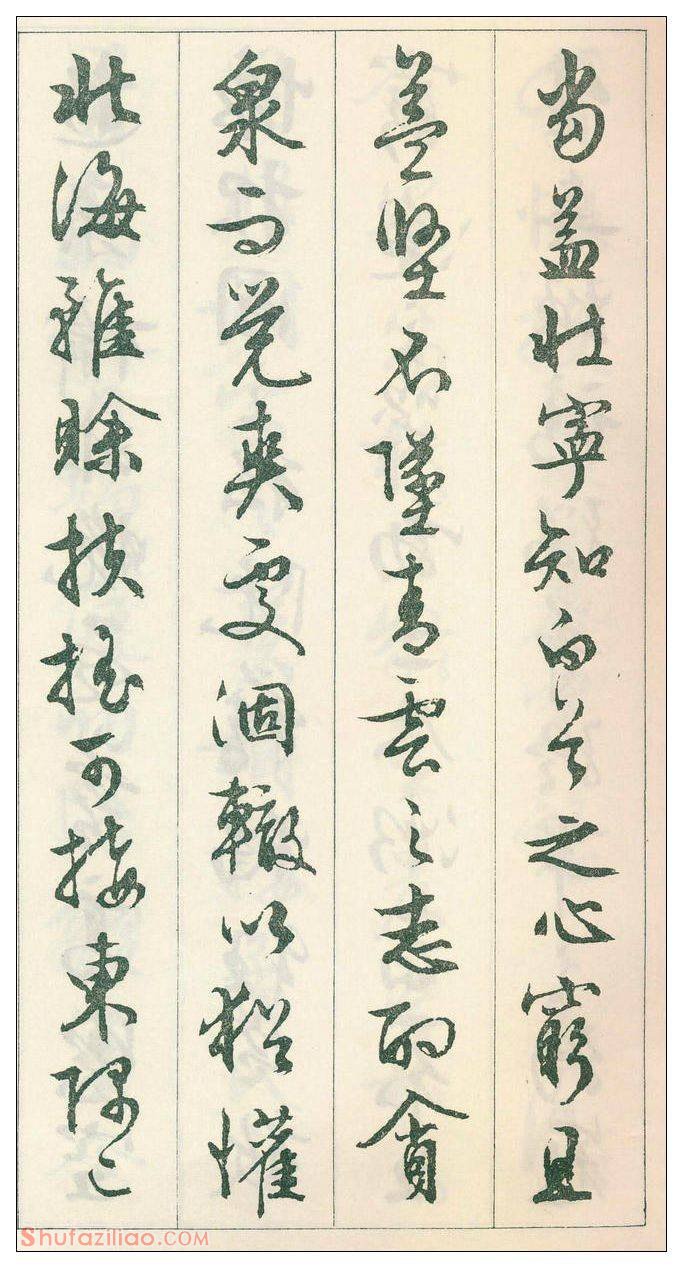 当益壮寧知白首之心窮且
益堅不墜青雲之志酌貪
泉而覺爽處涸轍以猶懽
北海雖賒扶摇可接東隅已
Shufaziliao.COM